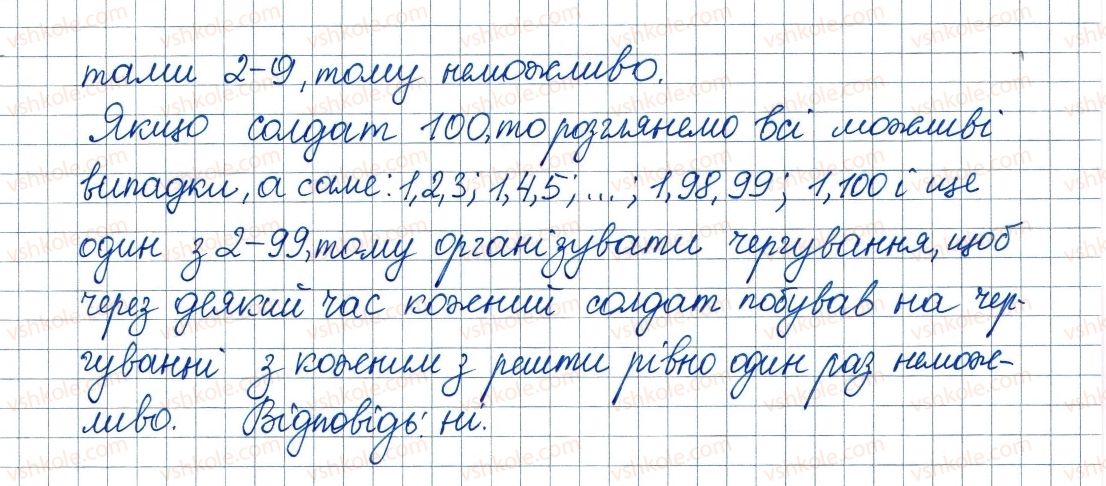 тами 2-9, тому неможливо.
Якщо солдат 100, то розглянемо всі можливі
випадки, а саме: 1,2,3; 1,4,5; ...; 1,98,99; 1,100 і ще
один з 2-99, тому організувати чергування, щоб
через деякий час кожний солдат побував на чер-
гуванні з кожним з решти рівно один раз неможе-
ливо. Відповідь: ні.